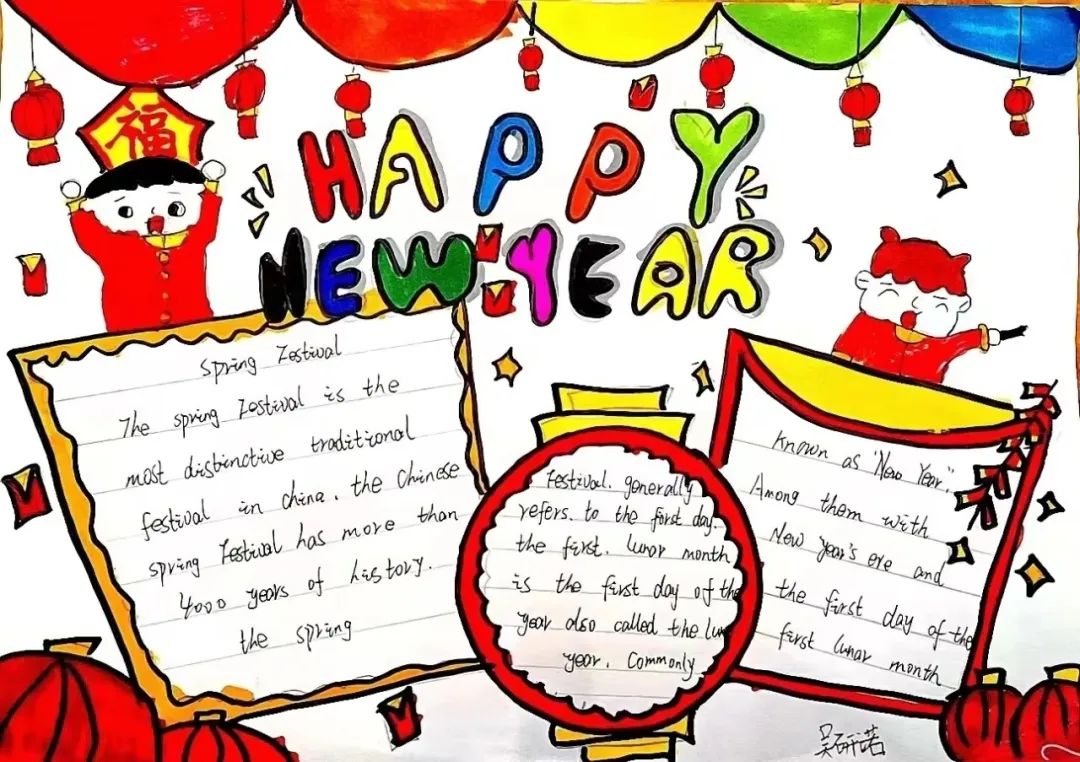 福
HAPPY
NEW YEAR
Spring Festival
The spring Festival is the
most distinctive traditional
festival in china. the Chinese
spring Festival has more than
4000 years of history.
the spring
Festival. generally
refers. to the first day.
the first. lunar month
is the first day of the
year also called the lun
year. Commonly
known as "New Year".
Among them with
New year's eve and
the first day of the
first lunar month
吴研诺